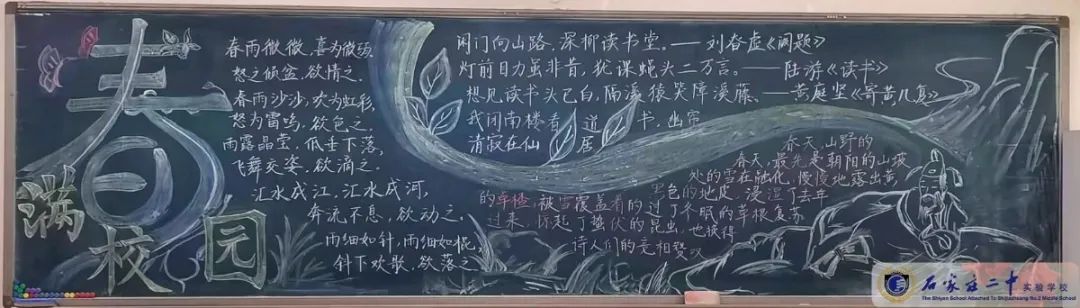 春满校园
春雨微微,喜为微颈,
怒之倾盆,欲情之。
春雨沙沙,欢为虹彩,
怒为雷鸣,欲色之。
雨露晶莹,低垂下落,
飞舞交姿,欲滴之。
汇水成江,汇水成河,
奔流不息,欲动之。
雨细如针,雨细如棍,
针下欢歌,欲落之。
闲门向山路,深柳读书堂。——刘昚虚《阙题》
灯前目力虽非昔,犹课蝇头二万言。——陆游《读书》
想见读书头已白,隔溪猿哭瘴溪藤。——黄庭坚《寄黄几复》
我闭南楼看道书,幽帘
清寂在仙居
春天,山野的
春天,最先是朝阳的山坡
处的雪在融化,慢慢地露出黄
黑色的地皮,浸湿了去年
的草楂,被雪覆盖着的过了冬眠的草根复苏
过来,惊起了蛰伏的昆虫,也彼得
诗人们的竞相赞叹
石家庄二中实验学校
The Shiyan School Attached To Shijiazhuang No.2 Middle School